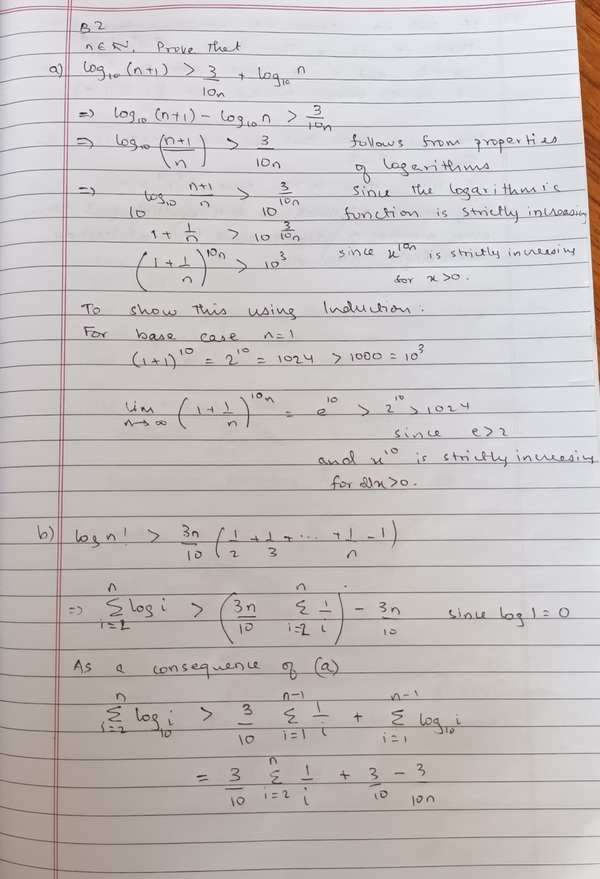 B2
n ∈ N. Prove that
a) log₁₀(n+1) > 3/10n + log₁₀ n
⇒ log₁₀(n+1) - log₁₀ n > 3/10n
⇒ log₁₀((n+1)/n) > 3/10n follows from properties of logarithms
⇒ 10^(log₁₀ (n+1)/n) > 10^(3/10n) since the logarithmic function is strictly increasing
1 + 1/n > 10^(3/10n)
(1 + 1/n)^(10n) > 10³ since x^(10n) is strictly increasing for x>0.
To show this using Induction:
For base case n=1
(1+1)^10 = 2^10 = 1024 > 1000 = 10³
lim n→∞ (1 + 1/n)^(10n) = e^10 > 2^10 > 1024
since e>2
and x^10 is strictly increasing
for x>0.
b) log n! > 3n/10 (1/2 + 1/3 + ... + 1/n - 1)
⇒ Σ_{i=2}^{n} log i > (3n/10 Σ_{i=2}^{n} 1/i) - 3n/10 since log 1 = 0
As a consequence of (a)
Σ_{i=2}^{n} log₁₀ i > 3/10 Σ_{i=1}^{n-1} 1/i + Σ_{i=1}^{n-1} log₁₀ i
= 3/10 Σ_{i=2}^{n} 1/i + 3/10 - 3/10n